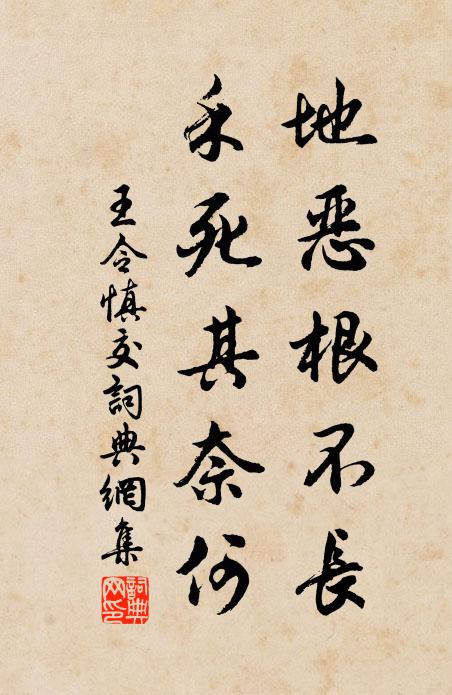 地恶根不長
禾死其奈何
王令慎交詞典網集
詞典
网印